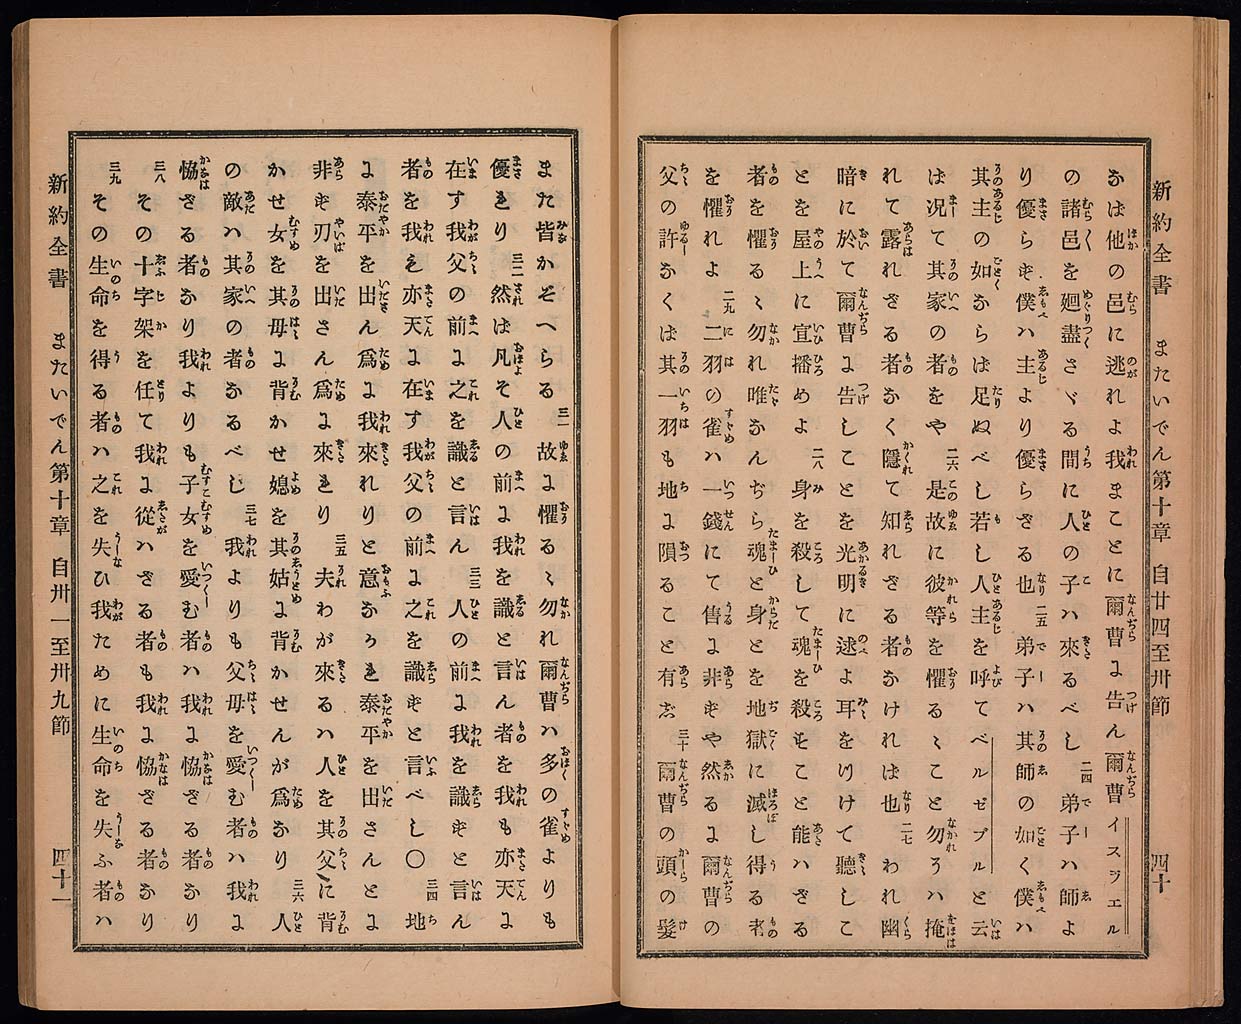 新約全書 またいでん第十章 自廿四至卅節 四十
なば他の邑に逃れよ我まことに爾曹よ告ん爾曹イスラエル
の諸邑を廻盡さゞる間に人の子ハ來るべし 二四 弟子ハ師よ
り優らず僕ハ主より優らざる也 二五 弟子ハ其師の如く僕ハ
其主の如ならば足ぬべし若し人主を呼てベルゼブルと云
ば况て其家の者をや 二六 是故に彼等を懼るゝこと勿れハ掩
れて露れざる者なく隱て知れざる者なければ也 二七 われ幽
暗に於て爾曹よ告しことを光明に述よ耳をつけて聽しこ
とを屋上に宣播めよ 二八 身を殺して魂を殺すこと能ハざる
者を懼るゝ勿れ唯なんぢら魂と身とを地獄に滅し得る者
を懼れよ 二九 二羽の雀ハ一錢にて售よ非ずや然るよ爾曹の
父の許なくば其一羽も地よ隕ること有じ 三十 爾曹の頭の髮
また皆かぞへらる 三一 故よ懼るゝ勿れ爾曹ハ多の雀よりも
優れり 三二 然ば凡そ人の前よ我を識と言ん者を我も亦天よ
在す我父の前よ之を識と言ん 三三 人の前よ我を識ずと言ん
者を我も亦天よ在す我父の前よ之を識ずと言べし〇 三四 地
よ泰平を出さん爲よ我來れりと意なかれ泰平を出さんとよ
非ず刃を出さん爲よ來れり 三五 夫わが來るハ人を其父に背
かせ女を其母よ背かせ媳を其姑よ背かせんが爲なり 三六 人
の敵ハ其家の者なるべし 三七 我よりも父母を愛む者ハ我よ
恊ざる者なり我よりも子女を愛む者ハ我よ恊ざる者なり
三八 その十字架を任て我よ從ハざる者も我よ恊ざる者なり
三九 その生命を得る者ハ之を失ひ我ために生命を失ふ者ハ
新約全書 またいでん第十章 自卅一至卅九節 四十一